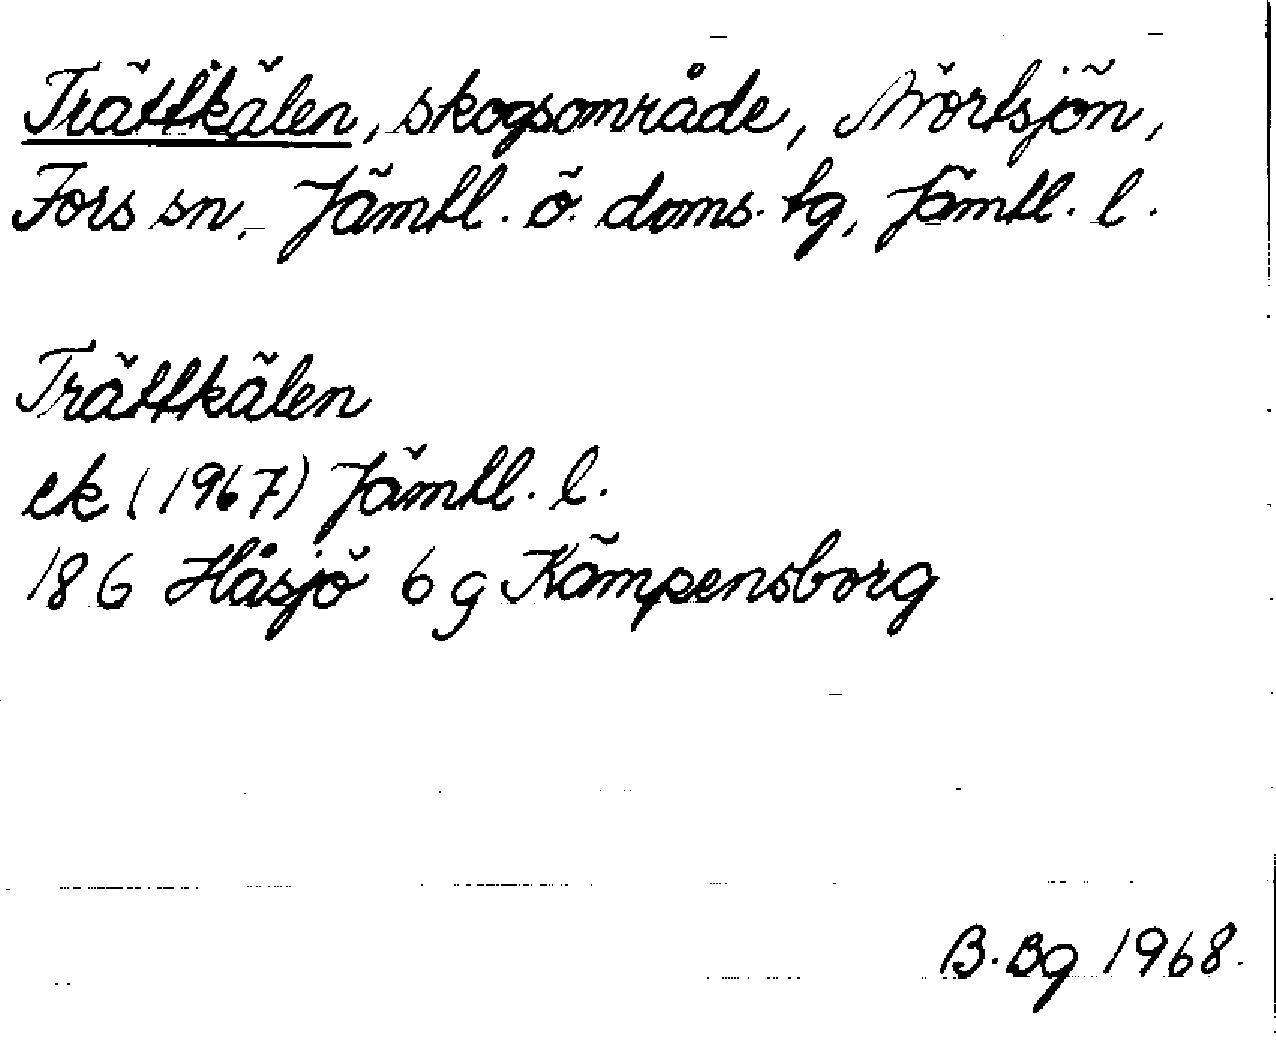 Trättkälen, skogsområde, Mörtsjön,
Fors sn, Jämtl. ö. doms. tg, Jämtl. l.
Trättkälen
ek (1967) Jämtl. l.
18 G Håsjö 6 g Kämpensborg
B. Bg 1968.